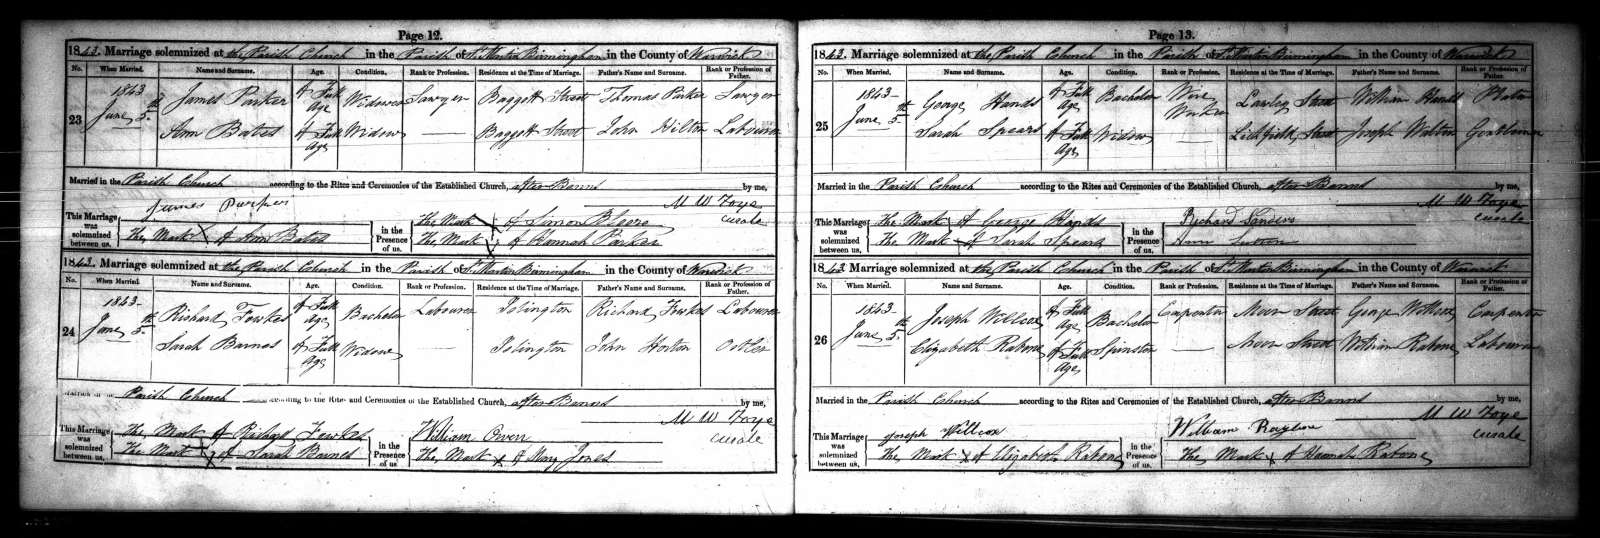 Page 12.
1843. Marriage solemnized at the Parish Church in the Parish of St Martin Birmingham in the County of Warwick
No. When Married. Name and Surname. Age. Condition. Rank or Profession. Residence at the Time of Marriage. Father's Name and Surname. Rank or Profession of Father.
23 1843 June 5th James Parker Of Full Age Widower Sawyer Baggott Street Thomas Parker Sawyer
Ann Bates Of Full Age Widow — Baggott Street John Hilton Labourer
Married in the Parish Church according to the Rites and Ceremonies of the Established Church, after Banns by me,
M W Foye
Curate
This Marriage was solemnized between us, James Parker
The Mark X of Ann Bates
in the Presence of us, The Mark X of Simon
The Mark X of Hannah Parker
1843. Marriage solemnized at the Parish Church in the Parish of St Martin Birmingham in the County of Warwick
No. When Married. Name and Surname. Age. Condition. Rank or Profession. Residence at the Time of Marriage. Father's Name and Surname. Rank or Profession of Father.
24 1843 June 5th Richard Fowkes Of Full Age Bachelor Labourer Islington Richard Fowkes Labourer
Sarah Barnes Of Full Age Widow — Islington John Horton Ostler
Married in the Parish Church according to the Rites and Ceremonies of the Established Church, after Banns by me,
M W Foye
Curate
This Marriage was solemnized between us, The Mark X of Richard Fowkes
The Mark X of Sarah Barnes
in the Presence of us, William Owen
The Mark X of Mary Jones
Page 13.
1843. Marriage solemnized at the Parish Church in the Parish of St Martin Birmingham in the County of Warwick
No. When Married. Name and Surname. Age. Condition. Rank or Profession. Residence at the Time of Marriage. Father's Name and Surname. Rank or Profession of Father.
25 1843 June 5th George Hands Of Full Age Bachelor Wire Worker Lawley Street William Hands Plater
Sarah Spears Of Full Age Widow — Lichfield Street Joseph Walton Gentleman
Married in the Parish Church according to the Rites and Ceremonies of the Established Church, after Banns by me,
M W Foye
Curate
This Marriage was solemnized between us, The Mark X of George Hands
The Mark X of Sarah Spears
in the Presence of us, Richard Sanders
Ann
1843. Marriage solemnized at the Parish Church in the Parish of St Martin Birmingham in the County of Warwick
No. When Married. Name and Surname. Age. Condition. Rank or Profession. Residence at the Time of Marriage. Father's Name and Surname. Rank or Profession of Father.
26 1843 June 5th Joseph Willcox Of Full Age Bachelor Carpenter Moor Street George Willcox Carpenter
Elizabeth Rabone Of Full Age Spinster — Moor Street William Rabone Labourer
Married in the Parish Church according to the Rites and Ceremonies of the Established Church, after Banns by me,
M W Foye
Curate
This Marriage was solemnized between us, Joseph Willcox
The Mark X of Elizabeth Rabone
in the Presence of us, William
The Mark X of Hannah Rabone